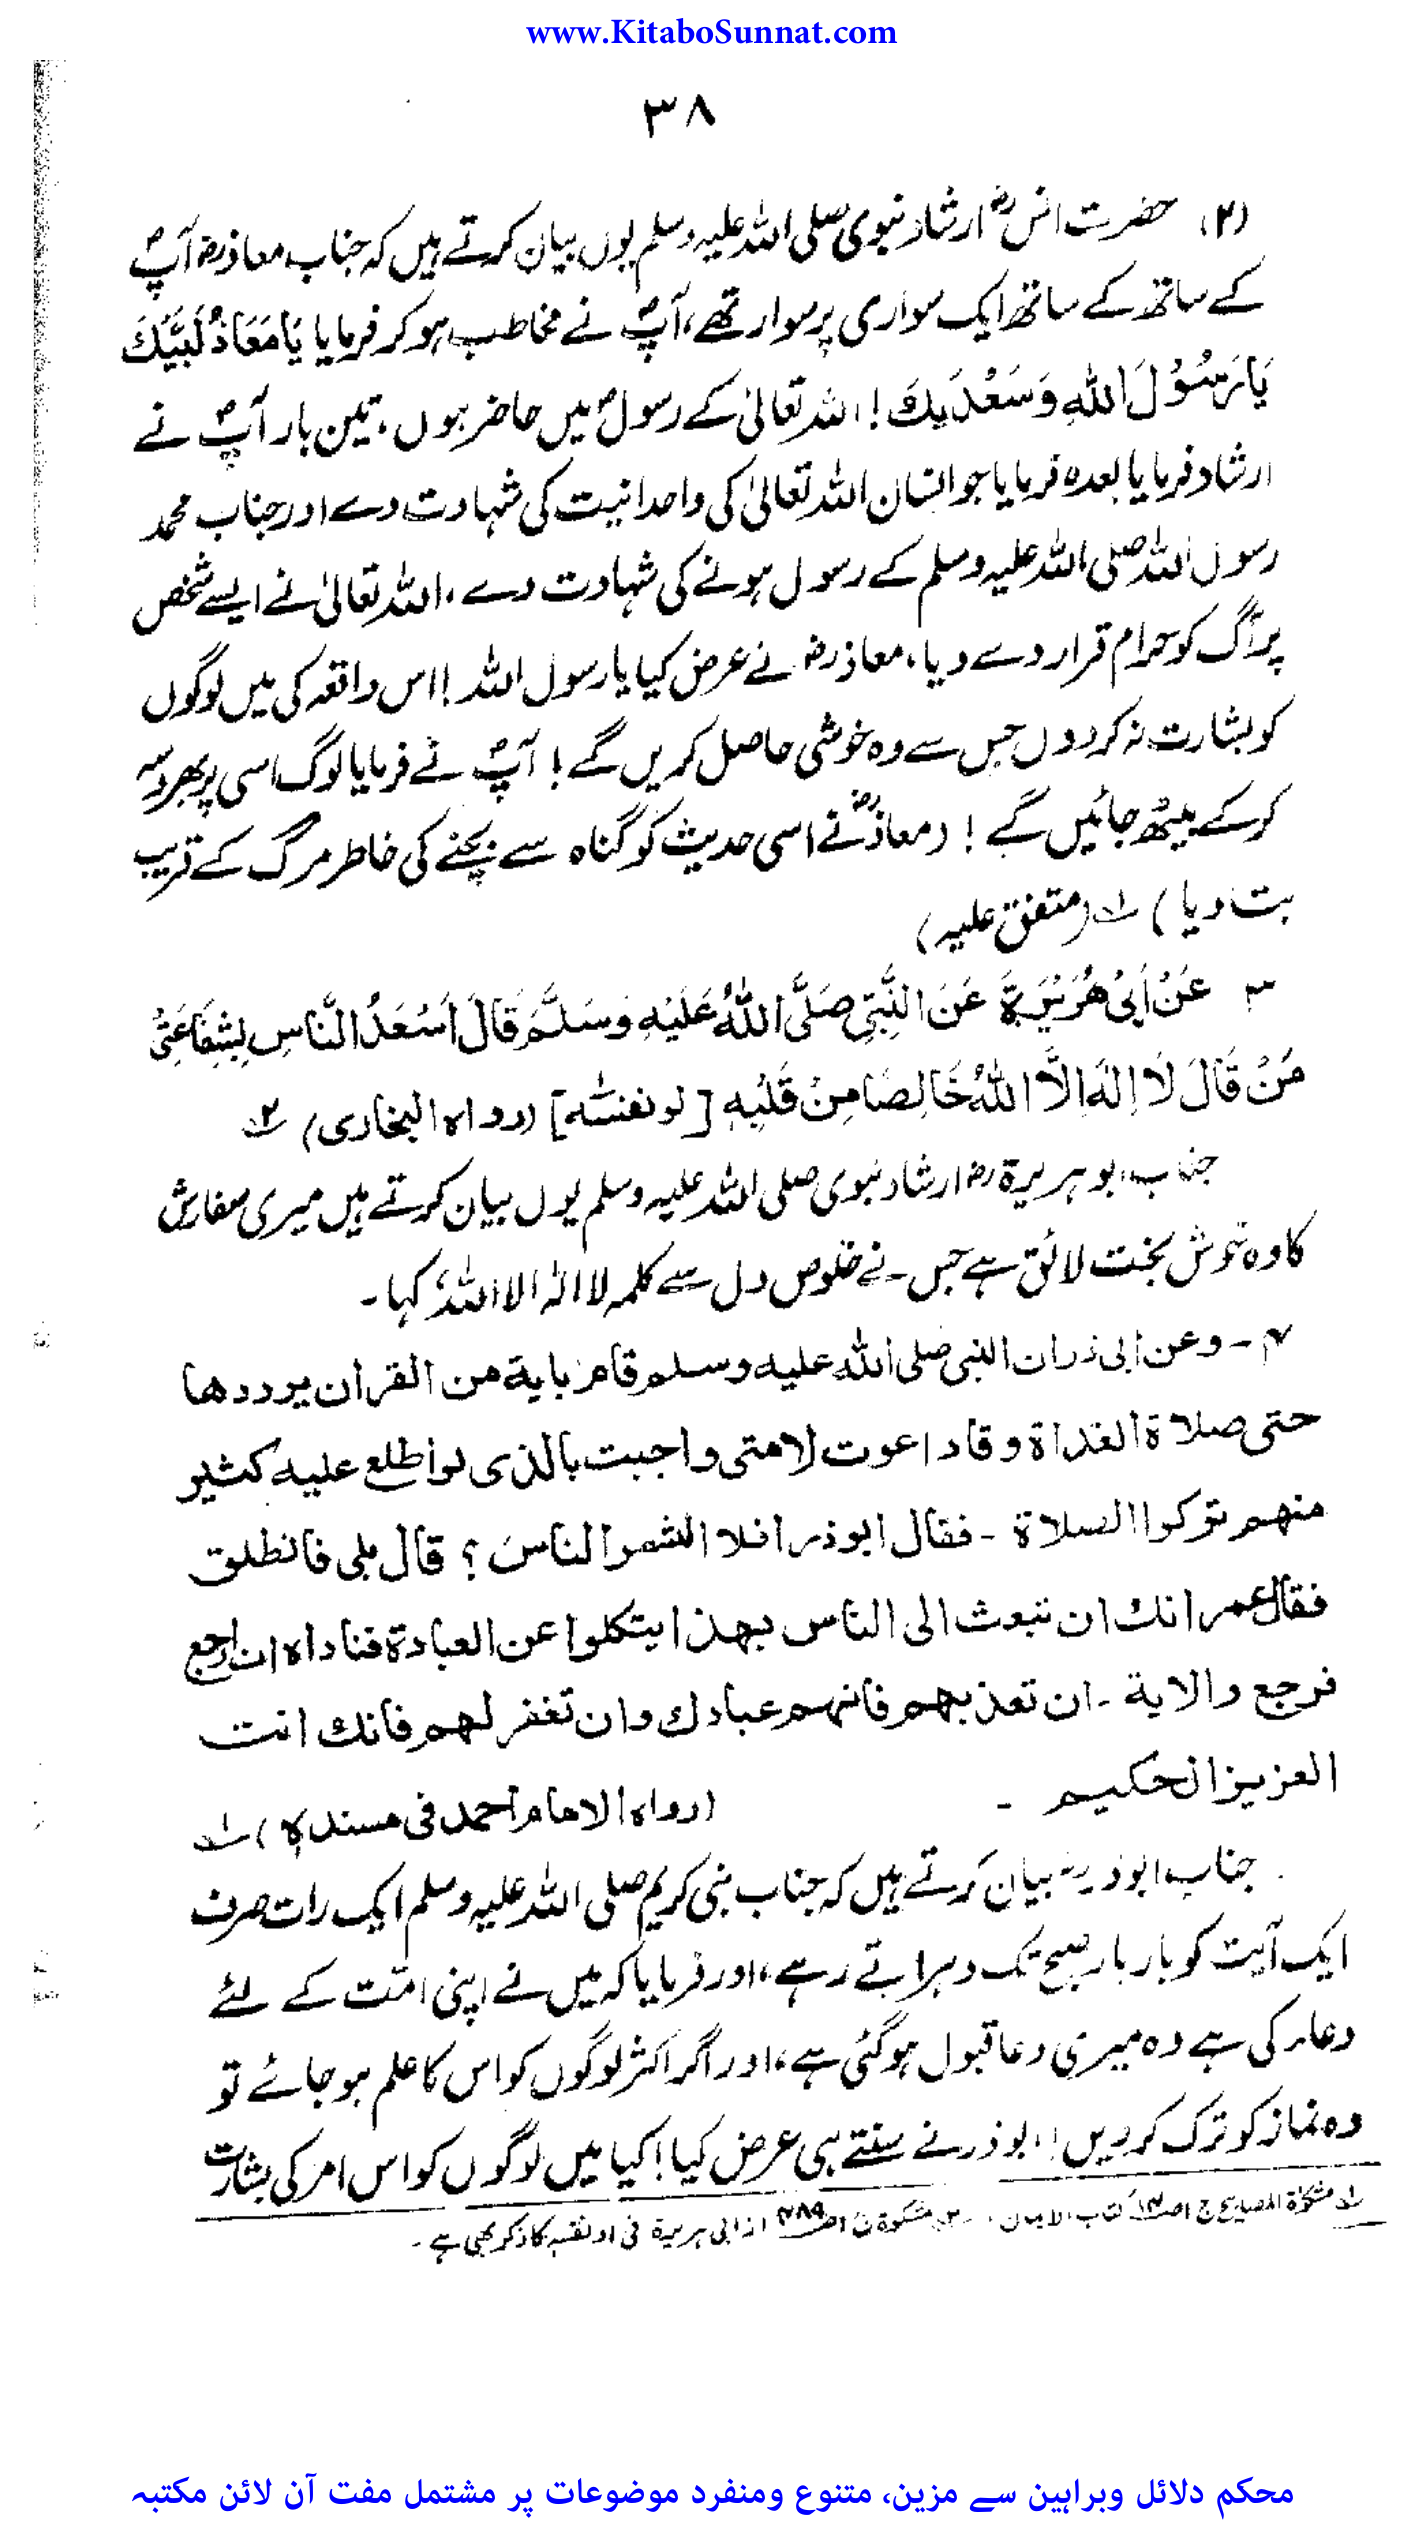 www.KitaboSunnat.com
۳۸
(۲) حضرت انسؓ ارشاد نبوی صلی اللہ علیہ وسلم یوں بیان کرتے ہیں کہ جناب معاذؓ آپؐ
کے ساتھ کے ساتھ ایک سواری پر سوار تھے، آپؐ نے مخاطب ہو کر فرمایا یَا مَعَاذُ لَبَّیْكَ
یَا رَسُوْلَ اللّٰهِ وَسَعْدَیكَ ! اللہ تعالیٰ کے رسولؐ میں حاضر ہوں، تین بار آپؐ نے
ارشاد فرمایا بعدہ فرمایا جو انسان اللہ تعالیٰ کی واحدانیت کی شہادت دے اور جناب محمد
رسول اللہ صلی اللہ علیہ وسلم کے رسول ہونے کی شہادت دے، اللہ تعالیٰ نے ایسے شخص
پر آگ کو حرام قرار دے دیا، معاذؓ نے عرض کیا یا رسول اللہ ! اس واقعہ کی میں لوگوں
کو بشارت نہ کر دوں جس سے وہ خوشی حاصل کریں گے ! آپؐ نے فرمایا لوگ اسی پر بھروسہ
کر کے بیٹھ جائیں گے ! (معاذؓ نے اسی حدیث کو گناہ سے بچنے کی خاطر مرگ کے قریب
بتا دیا) ۱ (متفق علیہ)
۳ عَنْ أَبِیْ هُرَیْرَةَ عَنَ النَّبِّیِ صَلَّی اللّٰهُ عَلَیْهِ وَسَلَّمَ قَالَ اَسْعَدُ النَّاسِ بِشِفَاعَتِیْ
مَنْ قَالَ لَا اِلٰهَ اِلَّا اللّٰهُ خَالِصًا مِنْ قَلْبِهٖ [لو نفسه] (رواه البخاری) ۲
جناب ابوہریرۃؓ ارشاد نبوی صلی اللہ علیہ وسلم یوں بیان کرتے ہیں میری سفارش
کا وہ خوش بخت لائق ہے جس نے خلوص دل سے کلمہ لا الہ الا اللہ، کہا۔
۴ - وعن ابی ذر ان النبی صلی اللّٰه علیه وسلم قام بایة من القرآن یرددها
حتی صلاة الغداة وقاد اعوت لامتی واجبت بالذی لو أطلع علیه کثیر
منهم ترکوا الصلاة - فقال ابوذر افلا الشمر الناس ؟ قال بلی فانطلق
فقال عمر انك ان تبعث الی الناس بهذا یتکلوا عن العبادة فناداه ان ارجع
فرجع والایة - ان تعذبهم فانهم عبادك وان تغفر لهم فانك انت
العزیز الحکیم - (رواه الامام احمد فی مسنده) ۱
جناب ابوذرؓ بیان کرتے ہیں کہ جناب نبی کریم صلی اللہ علیہ وسلم ایک رات صرف
ایک آیت کو بار بار صبح تک دہراتے رہے، اور فرمایا کہ میں نے اپنی امّت کے لئے
دعا کی ہے وہ میری دعا قبول ہو گئی ہے، اور اگر اکثر لوگوں کو اس کا علم ہو جائے تو
وہ نماز کو ترک کر دیں! ابوذر نے سنتے ہی عرض کیا! کیا میں لوگوں کو اس امر کی بشارت
۱ مشکوٰۃ المصابیح ج ۱ ص۱۴ کتاب الایمان، ۲ مشکوۃ ص ۴۸۹ از ابی ہریرۃ فی او نفسہ کا ذکر بھی ہے۔
محکم دلائل وبراہین سے مزین، متنوع ومنفرد موضوعات پر مشتمل مفت آن لائن مکتبہ